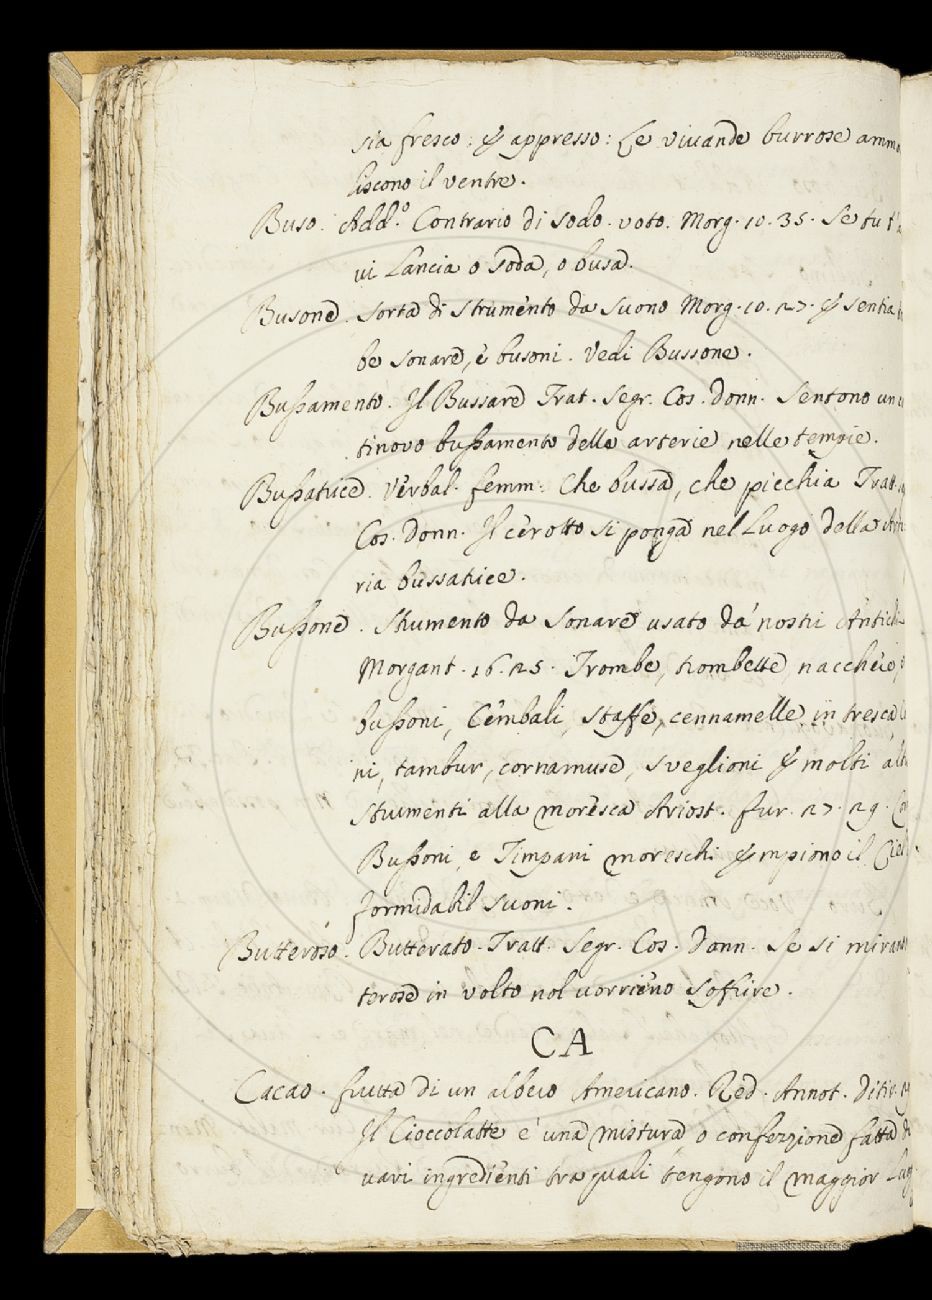 sia fresco: & appresso: Le viuande burrose ammo
liscono il ventre.
Buso. Add.º Contrario di sodo. voto. Morg. 10. 35. Se tu t'a
vi Lancia o soda, o busa.
Busone. Sorta di strumento da suono Morg. 10. 27. & sentia
be sonare, e busoni. Vedi Bussone.
Bussamento. Il Bussare Trat. Segr. Cos. Donn. Sentono un
tinovo bussamento delle arterie nelle tempie.
Bussatrice. Verbal. femm. Che bussa, che picchia Tratt.
Cos. Donn. Il cerotto si ponga nel Luogo della Arte
ria bussatrice.
Bussone. Strumento da Sonare usato da' nostri Antichi
Morgant. 16. 25. Trombe, trombette, nacchere,
bussoni, Cembali, staffe, cennamelle in tresca
ni, tambur, cornamuse, sveglioni & molti altri
strumenti alla moresca Ariost. fur. 27. 29. Con
Bussoni, e Timpani moreschi empiono il Ciel
formidabil suoni.
Butteroso. Butterato. Tratt. Segr. Cos. Donn. Se si miran
terose in volto nol vorrieno soffrire.
CA
Cacao. frutta di un albero Americano. Red. Annot. Ditir.
Il Cioccolatte è una mistura o confezzione fatta di
vari ingredienti tra quali tengono il maggior Luog